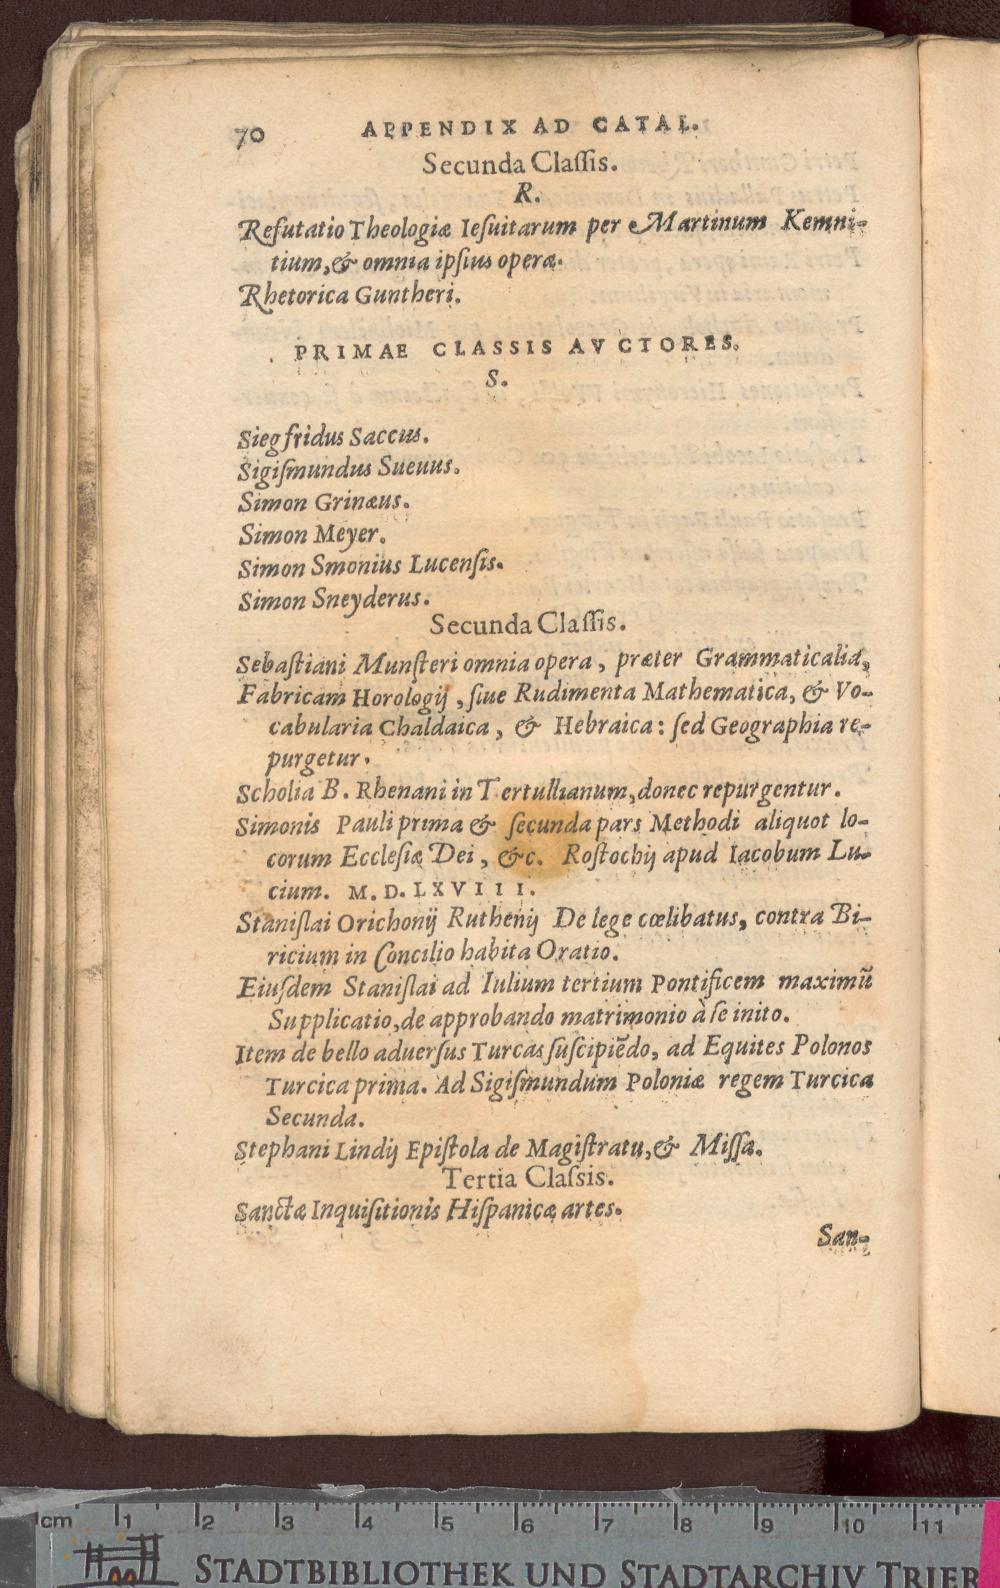 70 APPENDIX AD CATAL.
Secunda Claſſis.
R.
Refutatio Theologiæ Ieſuitarum per Martinum Kemni-
tium, & omnia ipſius opera.
Rhetorica Guntheri.
PRIMAE CLASSIS AVCTORES.
S.
Siegfridus Saccus.
Sigiſmundus Sueuus.
Simon Grinæus.
Simon Meyer.
Simon Smonius Lucenſis.
Simon Sneyderus.
Secunda Claſſis.
Sebaſtiani Munſteri omnia opera, præter Grammaticalia,
Fabricam Horologij, ſiue Rudimenta Mathematica, & Vo-
cabularia Chaldaica, & Hebraica: ſed Geographia re-
purgetur.
Scholia B. Rhenani in Tertullianum, donec repurgentur.
Simonis Pauli prima & ſecunda pars Methodi aliquot lo-
corum Eccleſiæ Dei, &c. Roſtochij apud Iacobum Lu-
cium. M. D. LXVIII.
Staniſlai Orichonij Ruthenij De lege cœlibatus, contra Bi-
ricium in Concilio habita Oratio.
Eiuſdem Staniſlai ad Iulium tertium Pontificem maximũ
Supplicatio, de approbando matrimonio à ſe inito.
Item de bello aduerſus Turcas ſuſcipiẽdo, ad Equites Polonos
Turcica prima. Ad Sigiſmundum Poloniæ regem Turcica
Secunda.
Stephani Lindij Epiſtola de Magiſtratu, & Miſſa.
Tertia Claſſis.
Sanctæ Inquiſitionis Hiſpanicæ artes.
San-
cm 1 2 3 4 5 6 7 8 9 10 11
STADTBIBLIOTHEK UND STADTARCHIV TRIER